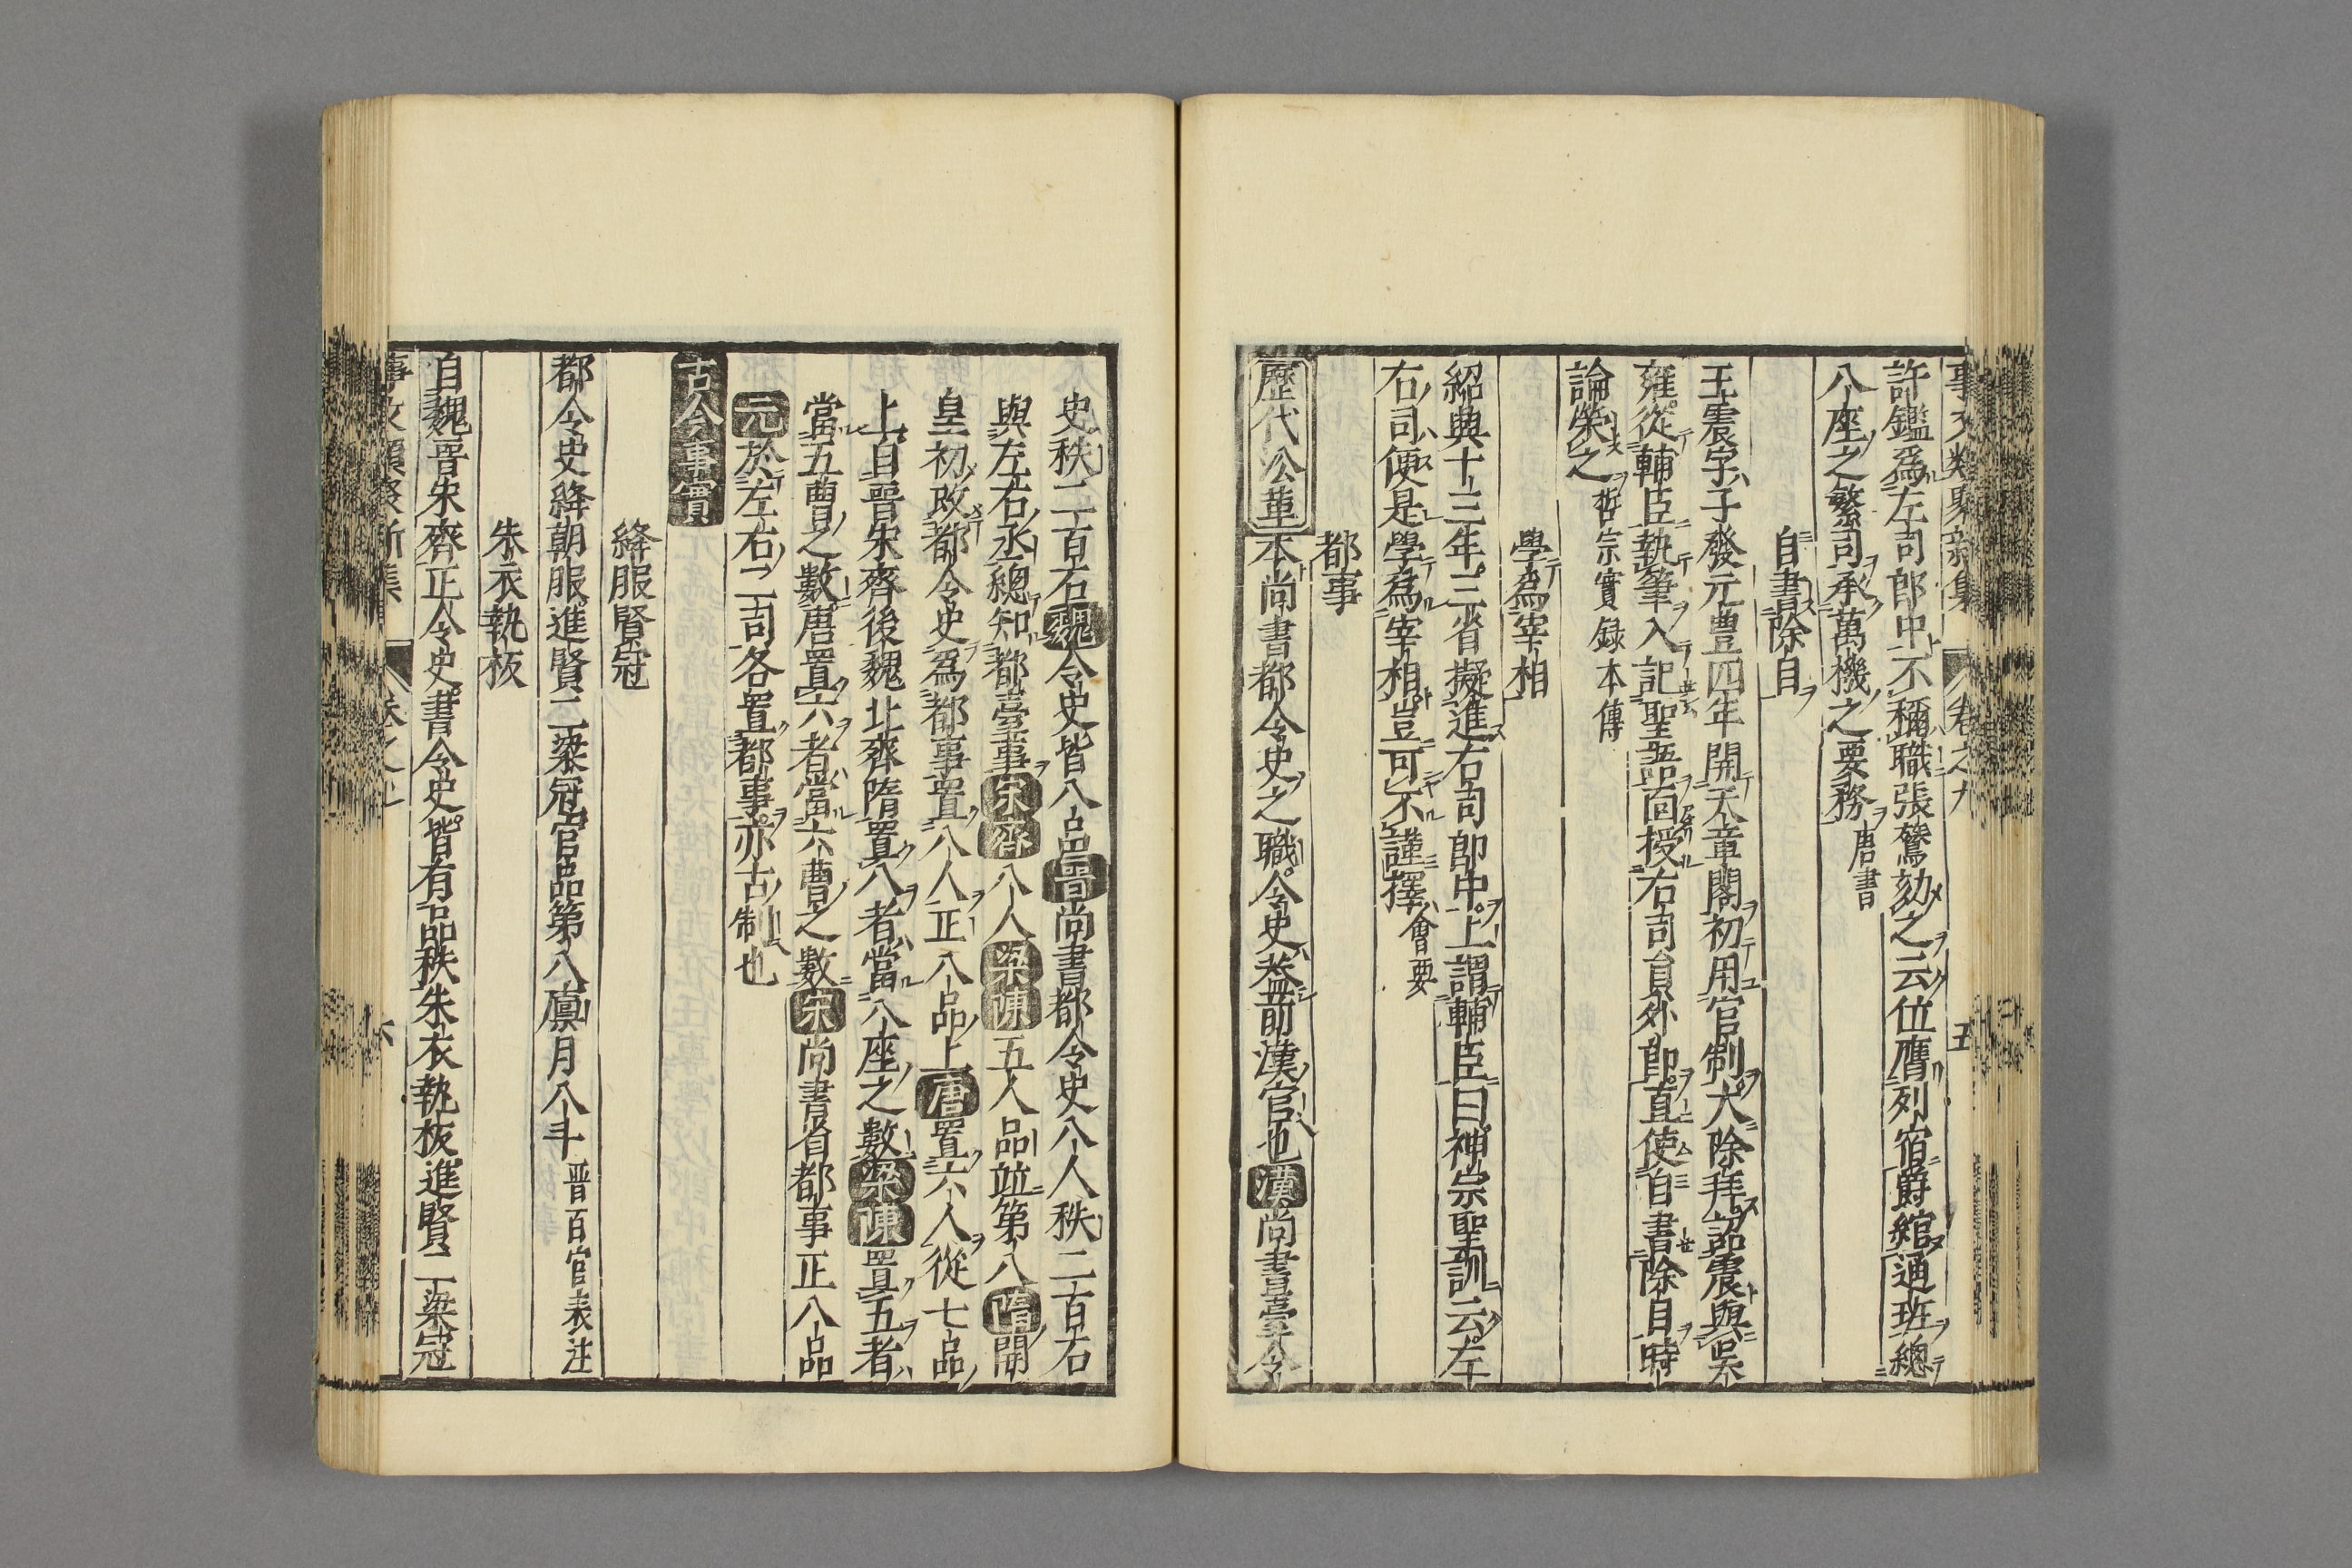 事文類聚新集 卷之九 五
許鑑爲左司郎中不稱職張鷟劾之云位膺列宿爵綰通班總
八座之繁司承萬機之要務唐書
自書除目
王震字子發元豊四年開天章閣初用官制大除拜詔震與吳
雍從輔臣執筆入記聖語面授右司員外郎直使自書除目時
論榮之哲宗實録本傳
學爲宰相
紹興十三年三省擬進右司郎中上謂輔臣曰神宗聖訓云左
右司便是學爲宰相豈可不謹擇會要
都事
歷代沿革本尚書都令史之職令史葢前漢官也漢尚書臺令
史秩二百石魏令史皆八品晋尚書都令史八人秩二百石
與左右丞總知都臺事宋齊八人梁陳五人品竝第八隋開
皇初改都令史爲都事置八人正八品上唐置六人從七品
上自晋宋齊後魏北齊隋置八者當八座之數梁陳置五者
當五曹之數唐置六者當六曹之數宋尚書省都事正八品
元於左右二司各置都事亦古制也
古今事實
絳服賢冠
都令史絳朝服進賢二梁冠官品第八廪月八斗晋百官表注
朱衣執板
自魏晋宋齊正令史書令史皆有品秩朱衣執板進賢二梁冠